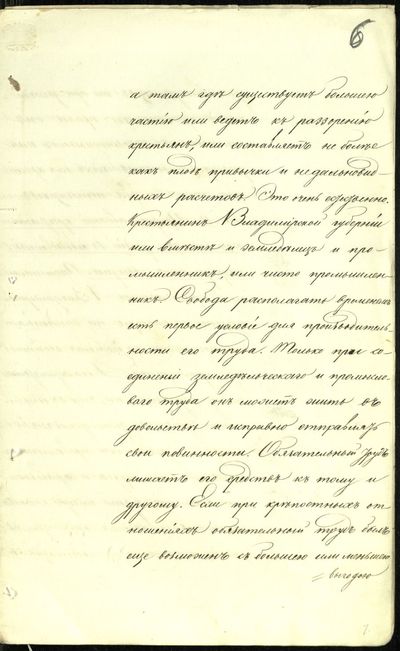 6
а тамъ гдѣ существуетъ большею
частію или ведетъ къ раззоренію
крестьянъ, или составляетъ не болѣе
какъ плодъ привычки и недальновид-
ныхъ расчетовъ. Это очень естественно.
Крестьянинъ Владимірской губерніи
или вмѣстѣ и земледѣлецъ и про-
мышленникъ, или чисто промышлен-
никъ. Свобода располагать временемъ
есть первое условіе для производитель-
ности его труда. Только при со-
единеніи земледѣльческаго и промысло-
ваго труда онъ можетъ жить въ
довольствѣ и исправно отправлять
свои повинности. Обязательный трудъ
лишаетъ его средствъ къ тому и
другому. Если при крѣпостныхъ от-
ношеніяхъ обязательный трудъ былъ
еще возможенъ съ большею или меньшею
= выгодою